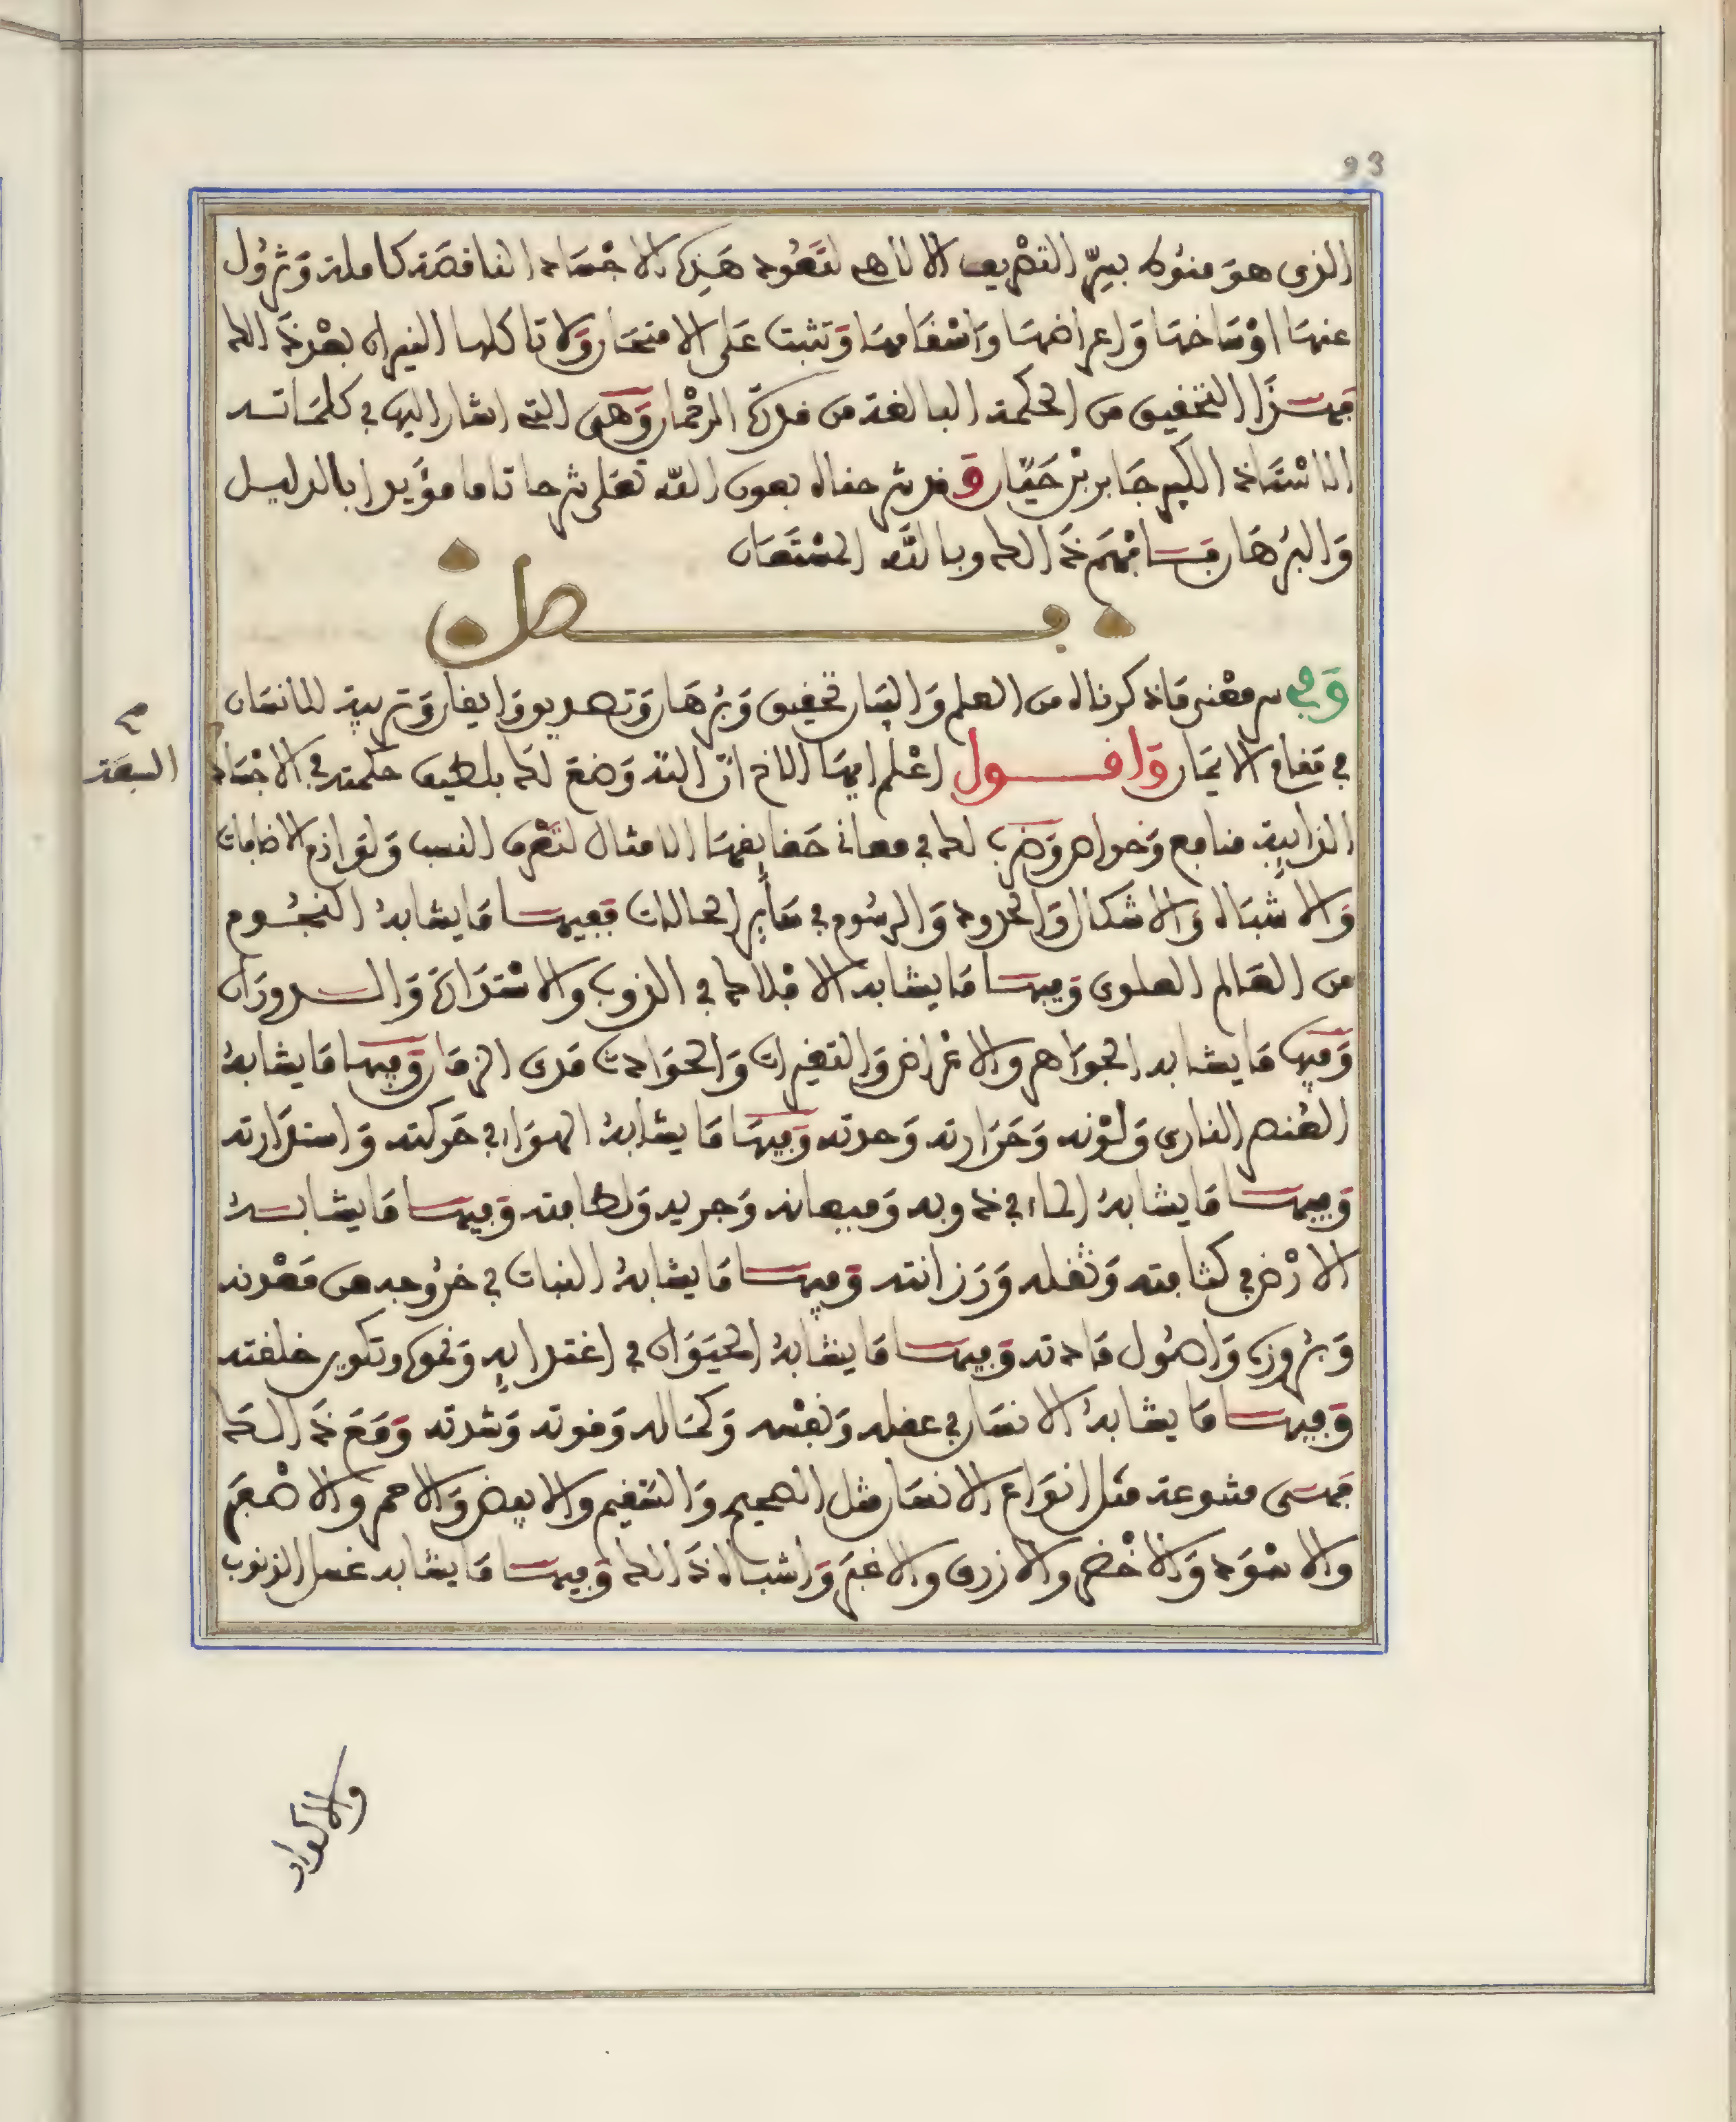 93
الذى هو منوط بسرّ التصريف الالاهى لتعود هذه الاجساد الناقصة كاملة وتزول
عنها اوساخها واعراضها واسقامها وتثبت على الامتحان ولا تاكلها النيران بعد ذالك
فهذا التحقيق من الحكمة البالغة من قدرة الرحمان وهى التى اشار اليها فى كلماته
الاستاذ الكبير جابر بن حيّان وقد شرحناه بعون الله تعلى شرحا تاما مؤيدا بالدليل
والبرهان فافهم ذالك وبالله المستعان
فصل
وفى سر معنى ماذكرناه من العلم والبيان تحقيق وبرهان وتصديق وايقان وتربية للانسان
فى مقام الايمان واقول اعلم ايها الاخ انّ الله وضع لك بلطيف حكمته فى الاجساد
السبعة
الذايبة منافع وخواص وضرب لك فى معانى حقايقها الامثال لتعرف النسب ولوازم الاضافات
والاشباه والاشكال والحدود والرسوم فى ساير الحالات ففيها ما يشابه النجوم
من العالم العلوى وفيها ما يشابه الافلاك فى الذوب والاستدارة والدوران
وفيها ما يشابه الجواهر والاعراض والتغيرات والحوادث مدى الزمان وفيها ما يشابه
العنصر النارى ولونه وحرارته وحدته وفيها ما يشابه الهواء فى حركته واستدارته
وفيها ما يشابه الماء فى ذوبه وميعانه وجريه ولطافته وفيها ما يشابه
الارض فى كثافته وثقله ورزانته وفيها ما يشابه النبات فى خروجه من معدنه
وبروزه واصول مادته وفيها ما يشابه الحيوان فى اغتدايه ونموه وتكوين خلقته
وفيها ما يشابه الانسان فى عقله ونفسه وكماله وقوته وشدته ومع ذالك
فهى متنوعة مثل انواع الانسان مثل الصحيح والسقيم والابيض والاحمر والاصفر
والاسود والاخضر والازرق والاغبر واشباه ذالك وفيها ما يشابه غسل الذنوب
والاكدار